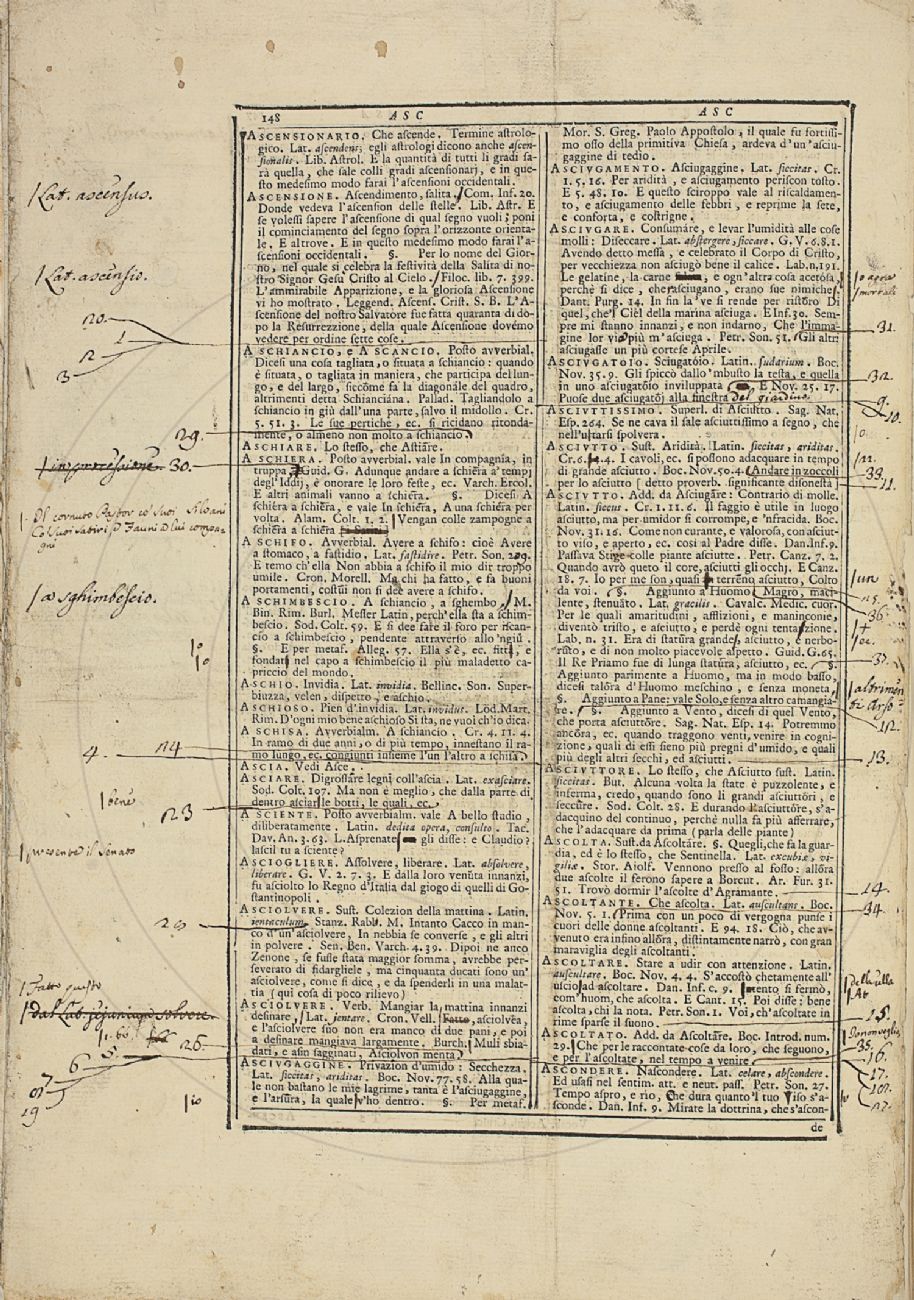 148 ASC ASC
ASCENSIONARIO. Che ascende. Termine astrolo-
gico. Lat. ascendens; egli astrologi dicono anche ascen-
sionalis. Lib. Astrol. E la quantità di tutti li gradi sa-
rà quella, che sale colli gradi ascensionarj, e in que-
sto medesimo modo farai l'ascensioni occidentali.
ASCENSIONE. Ascendimento, salita. Com. Inf. 20.
Donde vedeva l'ascension delle stelle. Lib. Astr. E
se volessi sapere l'ascensione di qual segno vuoli; poni
il cominciamento del segno sopra l'orizzonte orienta-
le. E altrove. E in questo medesimo modo farai l'a-
scensioni occidentali. §. Per lo nome del Gior-
no, nel quale si celebra la festività della Salita di no-
stro Signor Gesù Cristo al Cielo. Filoc. lib. 7. 399.
L'ammirabile Apparizione, e la gloriosa Ascensione
vi ho mostrato. Leggend. Ascens. Crist. S. B. L'A-
scensione del nostro Salvatore fue fatta quaranta dì do-
po la Resurrezzione, della quale Ascensione dovémo
vedere per ordine sette cose.
A SCHIANCIO, e A SCANCIO. Posto avverbial.
Dicesi una cosa tagliata, o situata a schiancio: quando
è situata, o tagliata in maniera, che participa del lun-
go, e del largo, siccóme fa la diagonále del quadro,
altrimenti detta Schianciána. Pallad. Tagliandolo a
schiancio in giù dall'una parte, salvo il midollo. Cr.
5. 51. 3. Le sue pertiche, ec. si ricidano ritonda-
mente, o almeno non molto a schiancio.
ASCHIARE. Lo stesso, che Astiāre.
A SCHIERA. Posto avverbial. vale In compagnia, in
truppa. Guid. G. Adunque andare a schiēra a' tempj
degl'Iddij, è onorare le loro feste, ec. Varch. Ercol.
E altri animali vanno a schiēra. §. Dicesi A
schiēra a schiēra, e vale In schiēra, A una schiēra per
volta. Alam. Colt. 1. 2. Vengan colle zampogne a
schiēra a schiēra
A SCHIFO. Avverbial. Avere a schifo: cioè Avere
a stomaco, a fastidio. Lat. fastidire. Petr. Son. 209.
E temo ch'ella Non abbia a schifo il mio dir troppo
umile. Cron. Morell. Ma chi ha fatto, e fa buoni
portamenti, costui non si dee avere a schifo.
A SCHIMBESCIO. A schiancio, a sghembo. M.
Bin. Rim. Burl. Messer Latin, perch'ella sta a schim-
bescio. Sod. Colt. 59. E si dee fare il foro per iscan-
cio a schimbescio, pendente attraverso allo 'ngiù.
§. E per metaf. Alleg. 57. Ella s'è, ec. fitta, e
fondata nel capo a schimbescio il più maladetto ca-
priccio del mondo.
ASCHIO. Invidia. Lat. invidia. Bellinc. Son. Super-
biuzza, velen, dispetto, e aschio.
ASCHIOSO. Pien d'invidia. Lat. invidus. Lod. Mart.
Rim. D'ogni mio bene aschioso Si sta, ne vuoi ch'io dica.
A SCHISA. Avverbialm. A schiancio. Cr. 4. 11. 4.
In ramo di due anni, o di più tempo, innestano il ra-
mo lungo, ec. congiunti insieme l'un l'altro a schisa.
ASCIA. Vedi Asce.
ASCIARE. Digrossare legni coll'ascia. Lat. exasciare.
Sod. Colt. 107. Ma non è meglio, che dalla parte di
dentro asciar le botti, le quali, ec.
A SCIENTE. Posto avverbialm. vale A bello studio,
diliberatamente. Latin. dedita opera, consulto. Tac.
Dav. An. 3. 63. L. Asprenate gli disse: e Claudio?
lascil tu a sciente?
ASCIOGLIERE. Assolvere, liberare. Lat. absolvere,
liberare. G. V. 2. 7. 3. E dalla loro venuta innanzi,
fu asciolto lo Regno d'Italia dal giogo di quelli di Go-
stantinopoli.
ASCIOLVERE. Sust. Colezion della mattina. Latin.
ientaculum. Stanz. Rabb. M. Intanto Cacco in man-
co d'un'asciolver, In nebbia se converse, e gli altri
in polvere. Sen. Ben. Varch. 4. 39. Dipoi ne anco
Zenone, se fusse stata maggior somma, avrebbe per-
severato di fidargliele, ma cinquanta ducati sono un'
asciolvere, come si dice, e da spenderli in una malat-
tia (qui cosa di poco rilievo)
ASCIOLVERE. Verb. Mangiar la mattina innanzi
desinare. Lat. jentare. Cron. Vell. asciolvēa,
e l'asciolvere suo non era manco di due pani, e poi
a desinare mangiava largamente. Burch. Muli sbia-
dati, e asin sagginati, Asciolvon menta
ASCIUGAGGINE. Privazion d'umido: Secchezza.
Lat. siccitas, ariditas. Boc. Nov. 77. 58. Alla qua-
le non bastano le mie lagrime, tanta è l'asciugaggine,
e l'arsūra, la quale v'ho dentro. §. Per metaf.
Mor. S. Greg. Paolo Appostolo, il quale fu fortissi-
mo osso della primitiva Chiesa, ardeva d'un'asciu-
gaggine di tedio.
ASCIVGAMENTO. Asciugaggine. Lat. siccitas. Cr.
1. 5. 16. Per aridità, e asciugamento periscon tosto.
E 5. 48. 10. E questo sciroppo vale al riscaldamen-
to, e asciugamento delle febbri, e reprime la sete,
e conforta, e costrigne.
ASCIVGARE. Consumáre, e levar l'umidità alle cose
molli: Diseccare. Lat. abstergere, siccare. G. V. 6. 8. 1.
Avendo detto messa, e celebrato il Corpo di Cristo,
per vecchiezza non asciugò bene il calice. Lab. n. 191.
Le gelatine, la carne e ogn'altra cosa acetosa,
perchè si dice, che rasciugano, erano sue nimiche
Dant. Purg. 14. In fin la 've si rende per ristóro Di
quel, che 'l Ciel della marina asciuga. E Inf. 30. Sem-
pre mi stanno innanzi, e non indarno, Che l'imma-
gine lor vie più m'asciuga. Petr. Son. 51. Gli altri
asciugasse un più cortese Aprile.
ASCIVGATOIO. Sciugatoio. Latin. sudarium. Boc.
Nov. 35. 9. Gli spiccò dallo 'mbusto la testa, e quella
in uno asciugatóio inviluppata E Nov. 25. 17.
Puose due asciugatój alla finestra del giardino
ASCIVTTISSIMO. Superl. di Asciutto. Sag. Nat.
Esp. 264. Se ne cava il sale asciuttissimo a segno, che
nell'urtarsi spolvera.
ASCIVTTO. Sust. Aridità. Latin. siccitas, ariditas.
Cr. 6. 4. I cavoli, ec. si possono adacquare in tempo
di grande asciutto. Boc. Nov. 50. 4. Andare in zoccoli
per lo asciutto [ detto proverb. significante disonestà ]
ASCIVTTO. Add. da Asciugāre: Contrario di molle.
Latin. siccus. Cr. 1. 11. 6. Il faggio è utile in luogo
asciutto, ma per umidor si corrompe, e 'nfracida. Boc.
Nov. 31. 16. Come non curante, e valorosa, con asciut-
to viso, e aperto, ec. così al Padre disse. Dan. Inf. 9.
Passava Stige colle piante asciutte. Petr. Canz. 7. 2.
Quando avrò queto il core, asciutti gli occhj. E Canz.
18. 7. Io per me son, quasi terreno asciutto, Colto
da voi. §. Aggiunto a Huomo Magro, maci-
lente, stenuáto. Lat. gracilis. Cavalc. Medic. cuor.
Per le quali amaritudini, afflizioni, e maninconie,
diventò tristo, e asciutto, e perdè ogni tentazione.
Lab. n. 31. Era di statūra grande, asciutto, e nerbo-
rūto, e di non molto piacevole aspetto. Guid. G. 65.
Il Re Priamo fue di lunga statūra, asciutto, ec. §.
Aggiunto parimente a Huomo, ma in modo basso,
dicesi talóra d'Huomo meschino, e senza moneta.
§. Aggiunto a Pane: vale Solo, e senza altro camangia-
re. §. Aggiunto a Vento, dicesi di quel Vento,
che porta asciuttóre. Sag. Nat. Esp. 14. Potremmo
ancóra, ec. quando traggono venti, venire in cogni-
zione, quali di essi sieno più pregni d'umido, e quali
più degli altri secchi, ed asciutti.
ASCIVTTORE. Lo stesso, che Asciutto sust. Latin.
siccitas. But. Alcuna volta la state è puzzolente, e
inferma, credo, quando sono li grandi asciuttóri, e
seccūre. Sod. Colt. 28. E durando l'asciuttóre, s'a-
dacquino del continuo, perchè nulla fa più afferrare,
che l'adacquare da prima (parla delle piante)
ASCOLTA. Sust. da Ascoltáre. §. Quegli, che fa la guar-
dia, ed è lo stesso, che Sentinella. Lat. excubiæ, vi-
giliæ. Stor. Aiolf. Vennono presso al fosso: allóra
due ascolte il ferono sapere a Borcut. Ar. Fur. 31.
51. Trovò dormir l'ascolte d'Agramante.
ASCOLTANTE. Che ascolta. Lat. auscultans. Boc.
Nov. 5. 1. Prima con un poco di vergogna punse i
cuori delle donne ascoltanti. E 94. 18. Ciò, che av-
venuto era infino allóra, distintamente narrò, con gran
maraviglia degli ascoltanti.
ASCOLTARE. Stare a udir con attenzione. Latin.
auscultare. Boc. Nov. 4. 4. S'accostò chetamente all'
uscio ad ascoltare. Dan. Inf. c. 9. Intento si fermò,
com'huom, che ascolta. E Cant. 15. Poi disse: bene
ascolta, chi la nota. Petr. Son. 1. Voi, ch'ascoltate in
rime sparse il suono.
ASCOLTATO. Add. da Ascoltāre. Boc. Introd. num.
29. Che per le raccontate cose da loro, che seguono,
e per l'ascoltate, nel tempo a venire
ASCONDERE. Nascondere. Lat. celare, abscondere.
Ed usasi nel sentim. att. e neut. pass. Petr. Son. 27.
Tempo aspro, e rio, Che dura quanto 'l tuo Viso s'a-
sconde. Dan. Inf. 9. Mirate la dottrina, che s'ascon-
de
Lat. ascensus.
Lat. ascensio.
20.
1
2
3
29.
30.
Il cornuto Pastor co' suoi Silvani
Co' suoi Satiri, e Fauni a lui compa-
gni
a sghimbescio.
4
14
bene
23
presente il Senato
Fatto questo
26
5
6
7
19
io
31.
32.
9.
10.
33.
11.
un
15.
36.
ec.
37.
altrimen
12.
13.
14.
34.
15.
35.
16.
17.